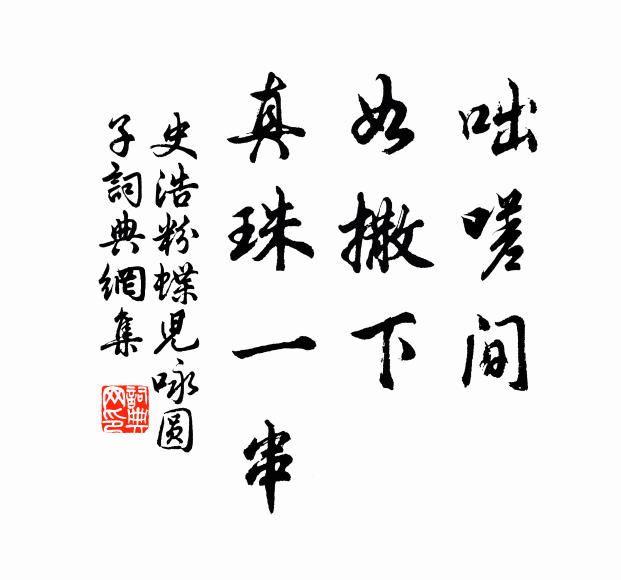 咄嗟间
如撒下
真珠一串
史浩粉蝶儿咏圆
子词典網集
詞典网印